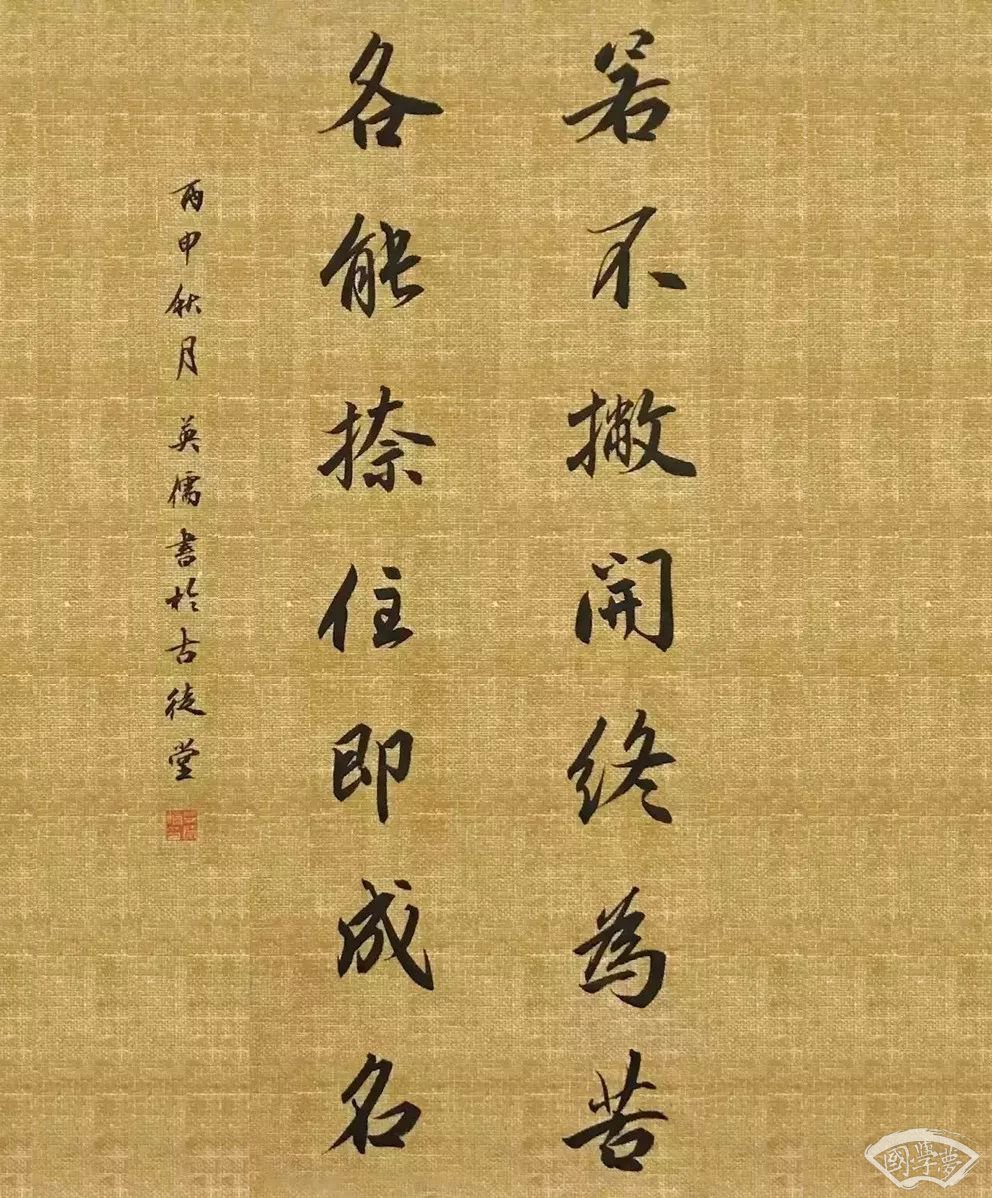 若不撇開終為苦
各能捺住即成名
丙申秋月 英儒書於古徒堂
國學夢